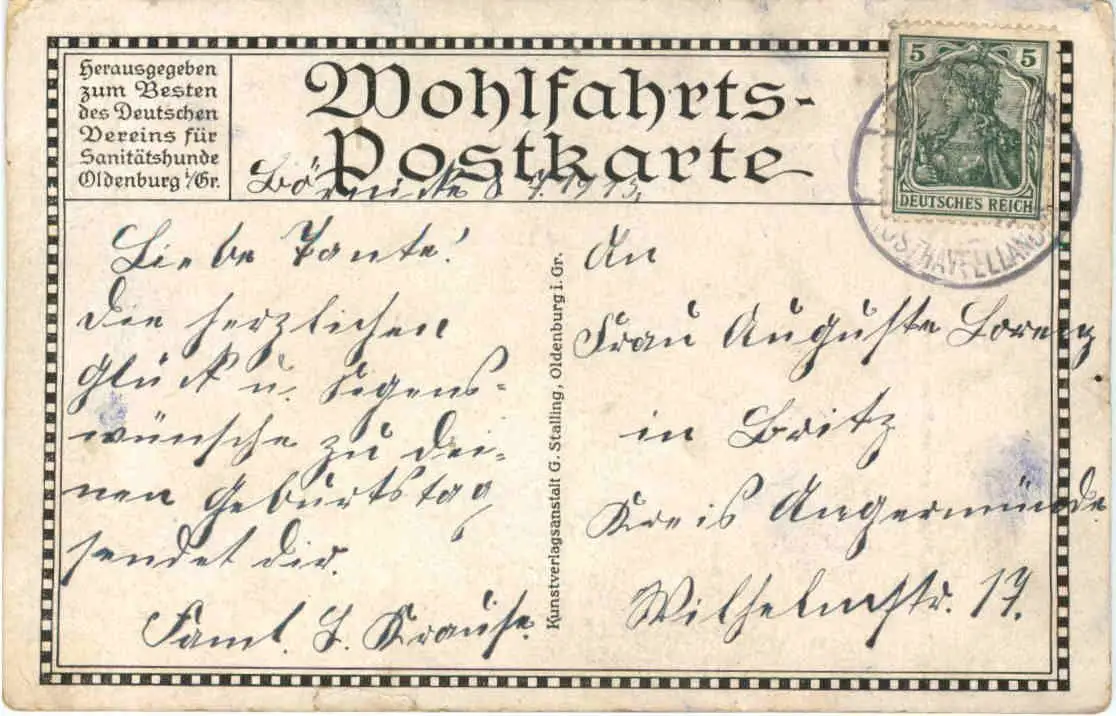 Herausgegeben
zum Besten
des Deutschen
Vereins für
Sanitätshunde
Oldenburg i/Gr.
Wohlfahrts-
Postkarte
Börnicke 8 4. 1913.
5 5
DEUTSCHES REICH
(OSTHAVELLAND)
Liebe Tante!
Die herzlichen
Glück u. Segens-
wünsche zu Dei-
nen Geburtstag
sendet dir.
Faml. Krause.
Kunstverlagsanstalt G. Stalling, Oldenburg i. Gr.
An
Frau Auguste Lorenz
in Britz
Kreis Angermünde
Wilhelmstr. 17.